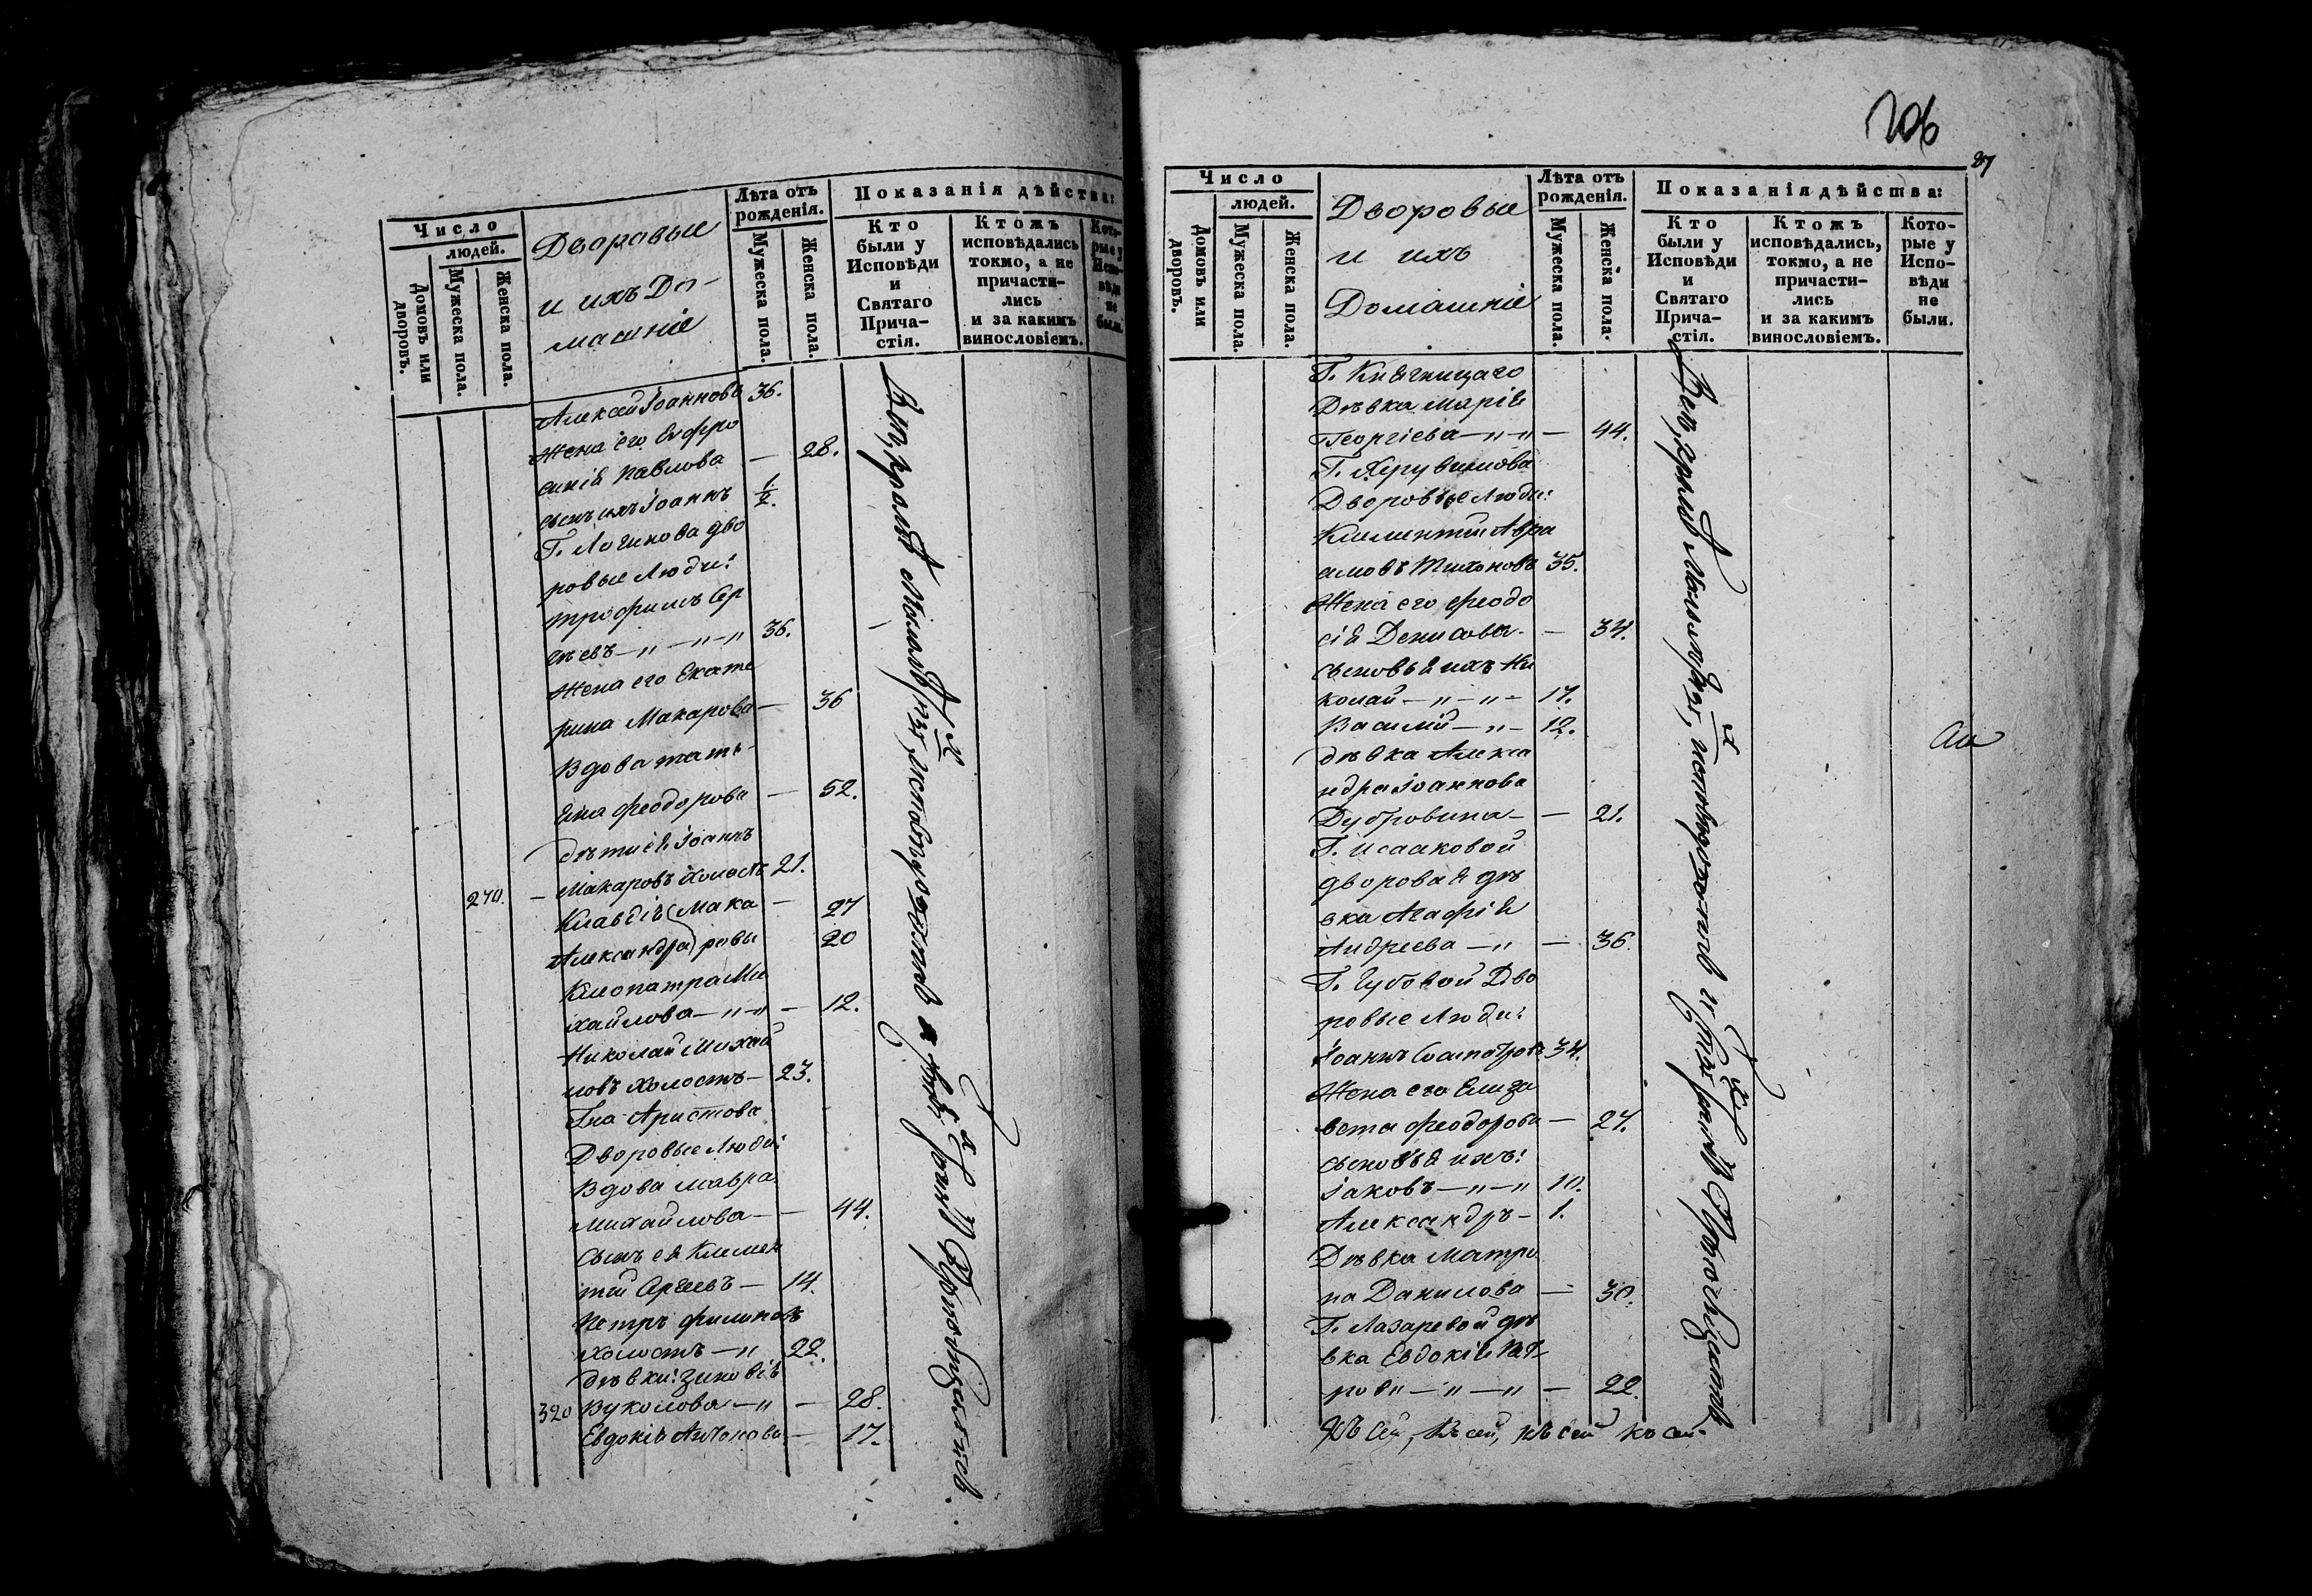 Число
людей.
Домовъ или дворовъ.
Мужеска пола.
Женска пола.
Дворовые
и ихъ До-
машніе
Лѣта отъ
рожденія.
Мужеска пола.
Женска пола.
Показанія дѣйства:
Кто
были у
Исповѣди
и
Святаго
Прича-
стія.
Ктожъ
исповѣдались
токмо, а не
причасти-
лись
и за какимъ
винословіемъ.
Кото-
рые у
Испо-
вѣди
не
были.
Алексѣй Іоанновъ 36.
Жена его Евфро
синія Павлова — 28.
сынъ ихъ Іоаннъ ½.
Г. Логинова дво
ровые Люди:
Трофимъ Сер
гѣевъ —„— —„ 36.
Жена его Екате
рина Макарова — 36
Вдова Тать-
яна Феодорова — 52.
дѣти ея Іоаннъ
270. — Макаровъ холостъ 21.
Клавдія (Мака — 27
Александра) ровы 20
Клеопатра Ми
хайлова —„—„ — 12.
Николай Михай
ловъ Холостъ — 23.
Гна Аристова
Дворовые Люди:
Вдова Мавра
Михайлова — — 44.
Сынъ ея Климен
тій Сергеевъ — 14.
Петръ Филиповъ
холостъ —„ 22.
дѣвки: Зиновія
320 Вуколова —„ — 28.
Евдокія Антонова — 17.
206
27
Число
людей.
Домовъ или дворовъ.
Мужеска пола.
Женска пола.
Дворовые
и ихъ
Домашніе
Лѣта отъ
рожденія.
Мужеска пола.
Женска пола.
Показанія дѣйства:
Кто
были у
Исповѣди
и
Святаго
Прича-
стія.
Ктожъ
исповѣдались,
токмо, а не
причасти-
лись
и за какимъ
винословіемъ.
Кото-
рые у
Испо-
вѣди
не
были.
Г. Княгницаго
Дѣвка Марія
Георгіева —„—„ — 44.
Г. Херувимова
Дворовые Люди:
Климентій Авра
амовъ Тихоновъ 35.
Жена его Феодо
сія Денисова — 34.
сыновья ихъ Ни
колай —„—„— 17.
Василій —„— 12.
дѣвка Алекса
ндра Іоаннова
Дубровина — — 21.
Г. Исааковой
дворовая дѣ
вка Агафія
Андреева —„ — 36.
Г. Губовой Дво
ровые Люди:
Іоаннъ 34.
Жена его Елиза
вета Феодорова — 27.
сыновья ихъ:
Іаковъ —„—„ 10.
Александръ — 1.
Дѣвка Матро
на Данилова — 30.
Г. Лазаревой дѣ
вка Евдокія Пет
рова —„—„ — 22.